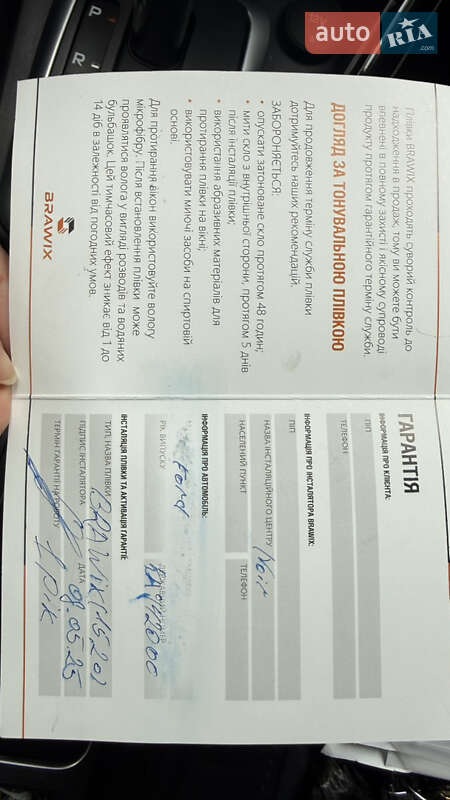 auto RIA.com
P
R
Плівки BRAWIX проходять суворий контроль до
надходження в продаж, тому ви можете бути
впевнені в повному захисті і якісному супроводі
продукту протягом гарантійного терміну служби.
ДОГЛЯД ЗА ТОНУВАЛЬНОЮ ПЛІВКОЮ
Для продовження терміну служби плівки
дотримуйтесь наших рекомендацій.
ЗАБОРОНЯЄТЬСЯ:
• опускати затоноване скло протягом 48 годин;
• мити скло з внутрішньої сторони, протягом 5 днів
після інсталяції плівки;
• використання абразивних матеріалів для
протирання плівки на вікні;
• використовувати миючі засоби на спиртовій
основі.
Для протирання вікон використовуйте вологу
мікрофібру. Після встановлення плівки може
проявлятися волога у вигляді розводів та водяних
бульбашок. Цей тимчасовий ефект зникає від 1 до
14 діб в залежності від погодних умов.
BRAWIX
ГАРАНТІЯ
ІНФОРМАЦІЯ ПРО КЛІЄНТА:
ПІП
ТЕЛЕФОН
ІНФОРМАЦІЯ ПРО ІНСТАЛЯТОРА BRAWIX:
ПІП
НАЗВА ІНСТАЛЯЦІЙНОГО ЦЕНТРУ Noir
НАСЕЛЕНИЙ ПУНКТ
ТЕЛЕФОН
ІНФОРМАЦІЯ ПРО АВТОМОБІЛЬ:
Ford
РІК ВИПУСКУ
ІНСТАЛЯЦІЯ ПЛІВКИ ТА АКТИВАЦІЯ ГАРАНТІЇ:
ТИП, НАЗВА ПЛІВКИ BRAWIX (15.20)
ПІДПИС ІНСТАЛЯТОРА
ДАТА 08.05.25
ТЕРМІН ГАРАНТІЇ НА РОБОТУ 1 Рік